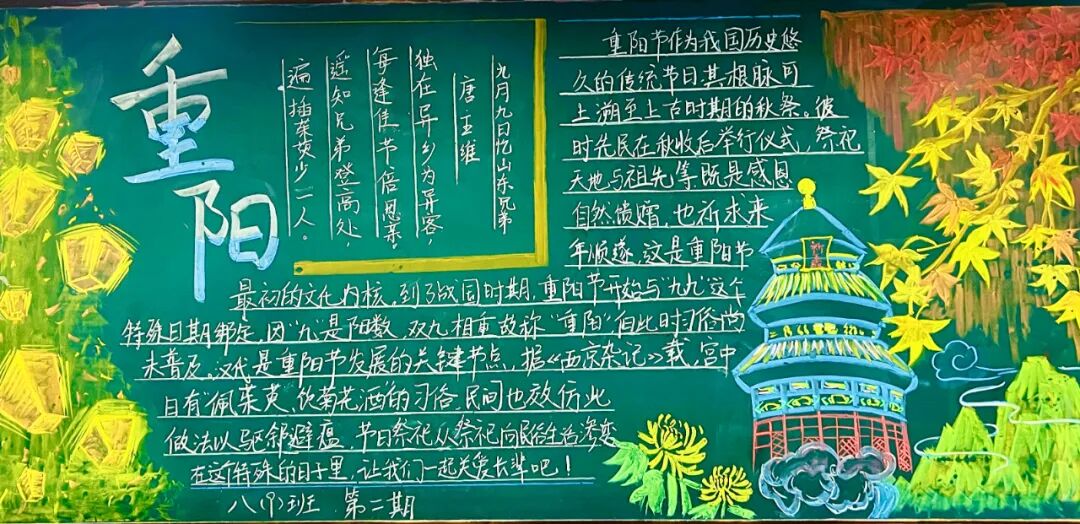 重阳
九月九日忆山东兄弟
唐 王维
独在异乡为异客，
每逢佳节倍思亲。
遥知兄弟登高处，
遍插茱萸少一人。
重阳节作为我国历史悠
久的传统节日其根脉可
上溯至上古时期的秋祭。彼
时先民在秋收后举行仪式，祭祀
天地与祖先等既是感恩
自然馈赠，也祈求来
年顺遂，这是重阳节
最初的文化内核，到了战国时期，重阳节开始与“九九”这个
特殊日期绑定，因“九”是阳数，双九相重故称“重阳”但此时习俗尚
未普及。汉代是重阳节发展的关键节点，据《西京杂记》载，宫中
自有“佩茱萸、饮菊花酒”的习俗，民间也效仿此
做法以驱邪避瘟，节日祭祀从祭祀向民俗生活渗变
在这个特殊的日子里，让我们一起关爱长辈吧！
八（9）班 第二期